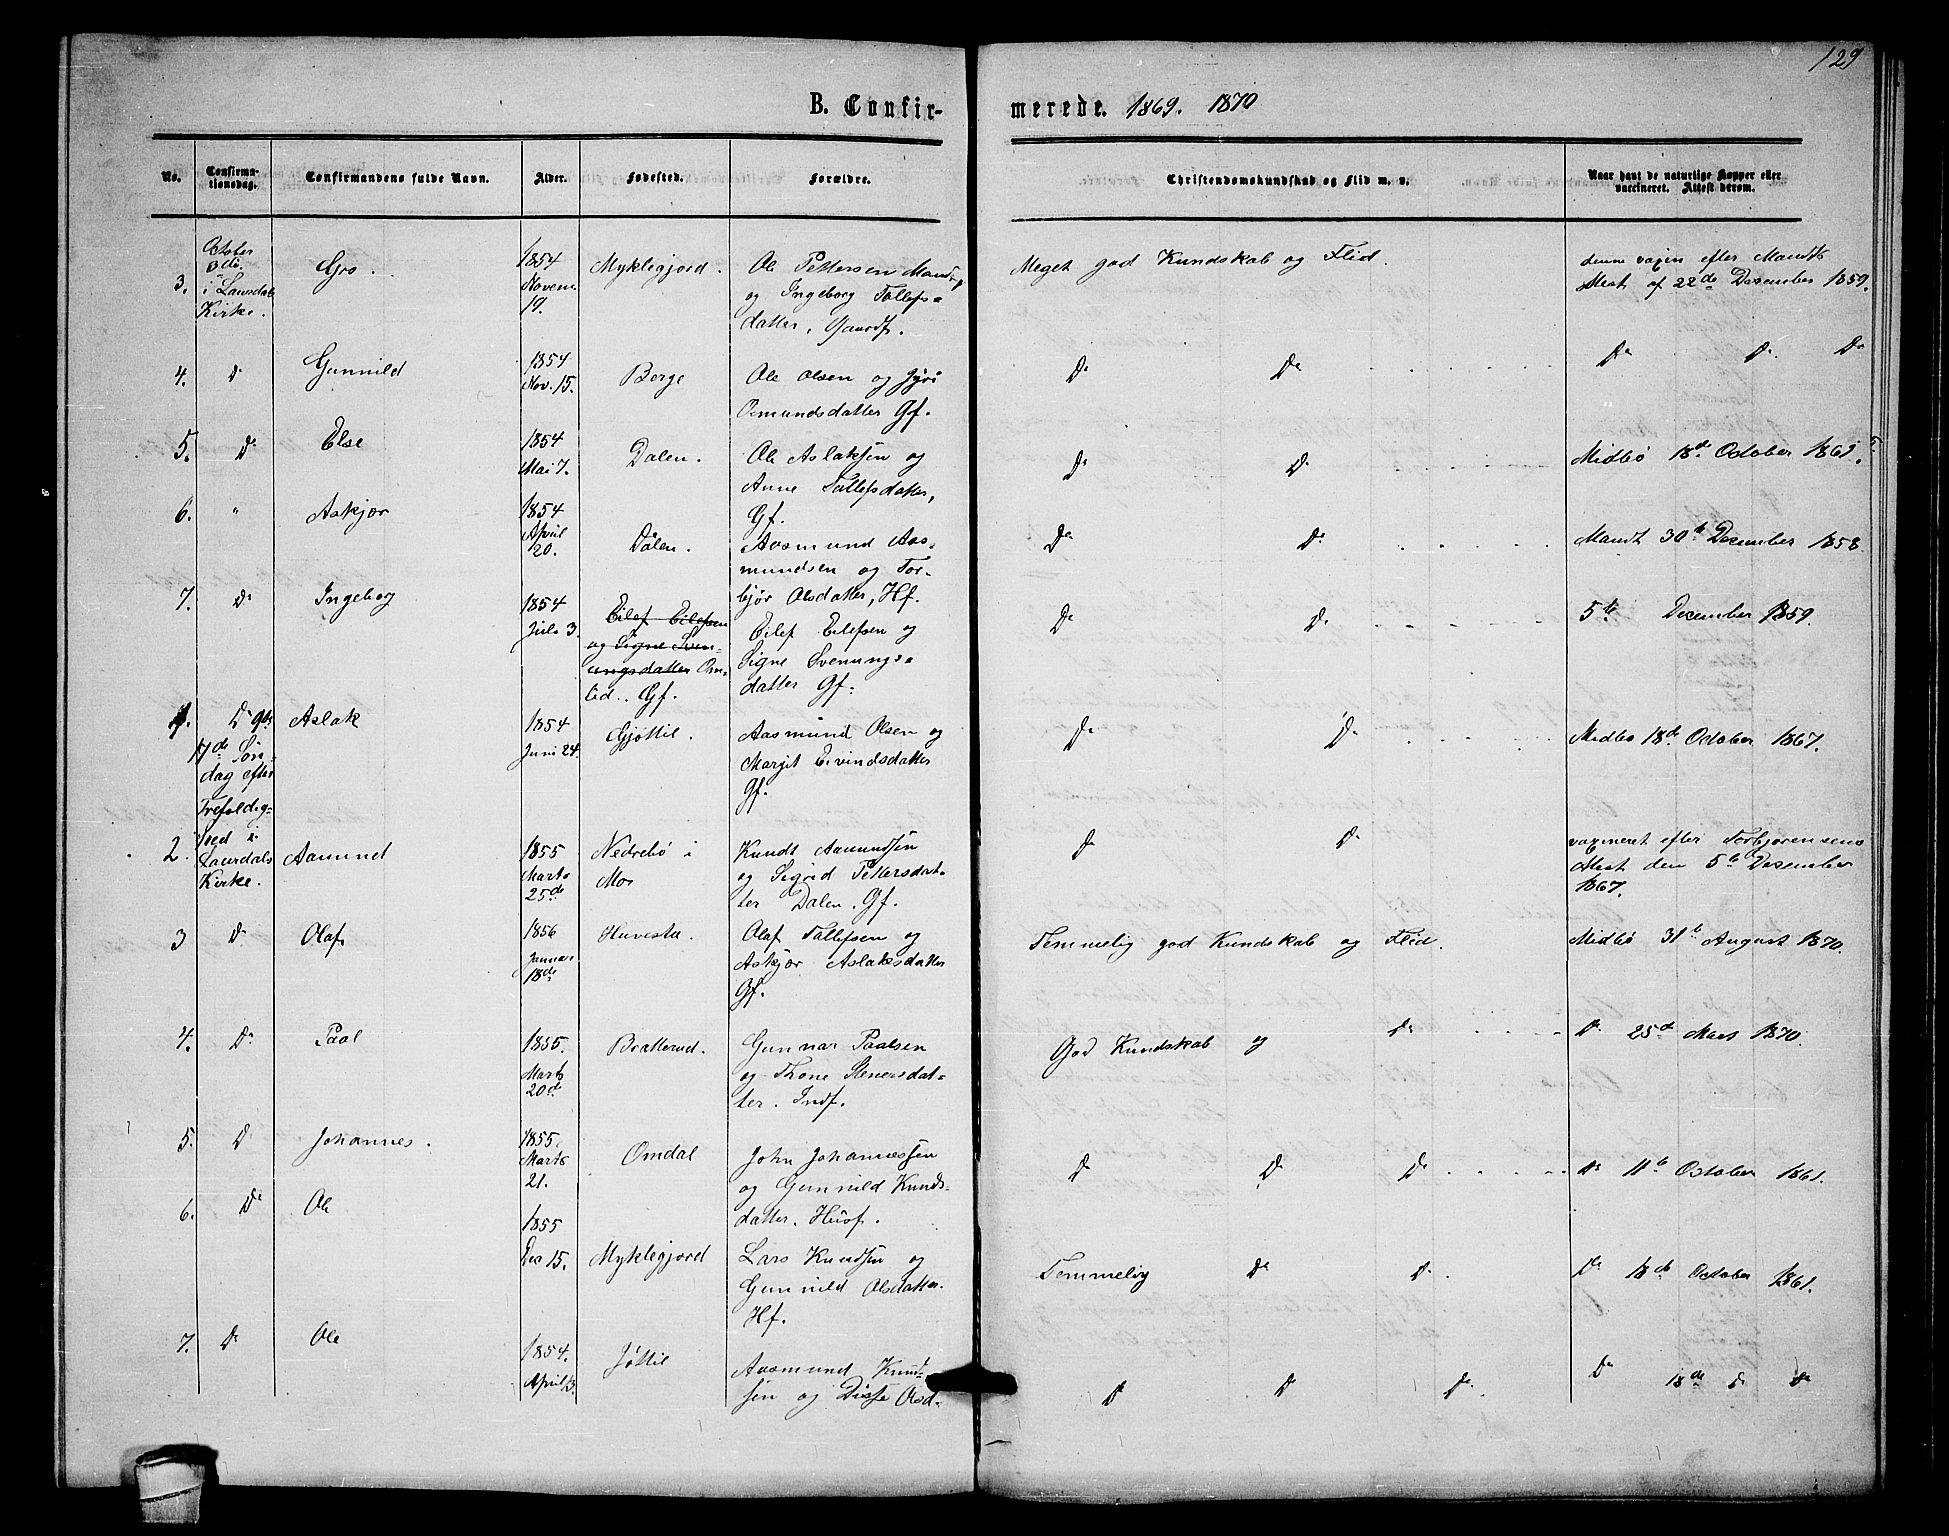 129
B. Confir-
merede. 1869. 1870
No.
Confirma-
tionsdag.
Confirmandens fulde Navn.
Alder.
Fødested.
Forældre.
Christendomskundskab og Flid m. v.
Naar havt de naturlige Kopper eller
vaccineret. Attest derom.
3.
October
3die
i Laurdals
Kirke.
Gro.
1854
Novem.
19.
Myklegjord.
Ole Pettersen
og Ingeborg Tallefs-
datter, Gaardf.
Meget god Kundskab og Flid.
denne vaxin efter Mandts
Atest af 22de Desember 1859.
4.
Do
Gunnild
1854
Nov. 15.
Berge
Ole Olsen og Jyri
Osmundsdatter Gf.
Do Do
Do Do Do
5.
Do
Else
1854
Mai 7.
Dalen.
Ole Aslaksen og
Anne Tallefsdatter,
Gf.
Do Do
Midbö 18de October 1861.
6.
"
Askjær
1854
April
20.
Dalen.
Aosmund Aas-
mundsen og Tor-
bjør Olsdatter, Hf.
Do Do
Mandt 30te Desember 1858
7.
Do
Ingeborg
1854
Juli 3.
Eilef Eilefsen
og Signe Sven-
ungsdatter Om-
lid. Gf.
Eilef Eilefsen og
Signe Svenungs-
datter Gf.
Do Do
5te Desember 1859.
1.
Do 9de
17de Søn-
dag efter
Trefoldig-
hed i
Laurdals
Kirke.
Aslak
1854
Juni 24.
Gjøttil
Aasmund Olsen og
Margit Eivindsdatter
Gf.
Do Do
Midbö 18de October 1867.
2.
Aamund
1855
Marts
25de
Nedrebö i
Mos
Kundt Aamundsen
og Sigrid Pettersdat-
ter Dalen. Gf.
Do Do
vaxineret efter Torbjørensens
Atest den 5te Desember
1867.
3
Do
Olaf
1856
Januar
18de
Huvesta.
Olaf Tallefsen og
Askjær Aslaksdatter
Gf.
Temmelig god Kundskab og Flid.
Midbö 31te August 1870.
4.
Do
Paal
1855.
Marts
20de
Bratterud.
Gunnar Paalsen
og Thone Stenersdat-
ter. Indf.
God Kundskab og Do
Do 25de Mars 1870.
5.
Do
Johannes.
1855.
Marts
21.
Omdal
John Johannessen
og Gunnild Kunds-
datter. Husf.
Do Do Do
Do 11te October 1861.
6.
Do
Ole
1855
Des 15.
Myklegjord
Lars Kundsen og
Gunnild Olsdatter.
Hf.
Temmelig Do Do
Do 18de October 1861.
7.
Do
Ole
1854.
April 3.
Jøttil
Aasmund Knud-
sen og Disse Olsd-
Do Do Do
Do 18de Do Do